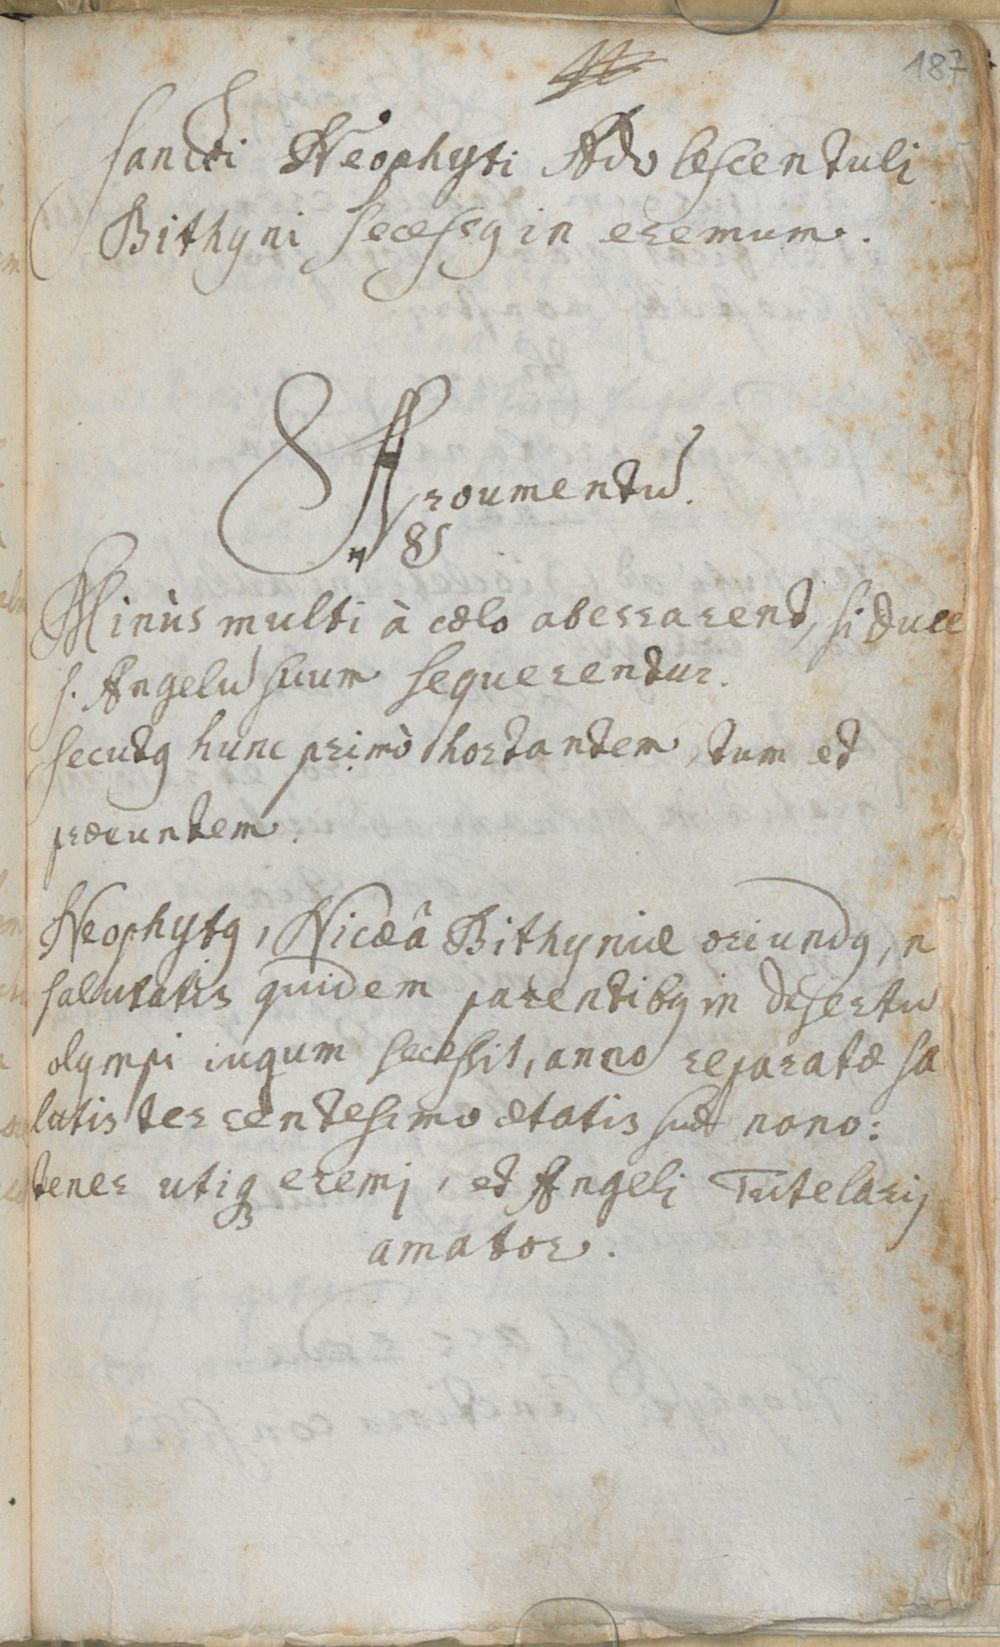 187
Sancti Neophyti Adolescentuli
Bithyni secessꝰ in eremum.
Argumentū.
Minùs multi à cælo aberrarent, si duce
s. Angelū suum sequerentur.
secutꝰ hunc primò hortantem, tum et
præeuntem.
Neophytꝰ, Nicæâ Bithyniæ oriundꝰ, n
salutatis quidem parentibꝰ in desertū
olympi iugum secessit, anno reparatæ sa
lutis tercentesimo ætatis suæ nono:
tener utiqꝫ eremi, et Angeli Tutelarij
amator.